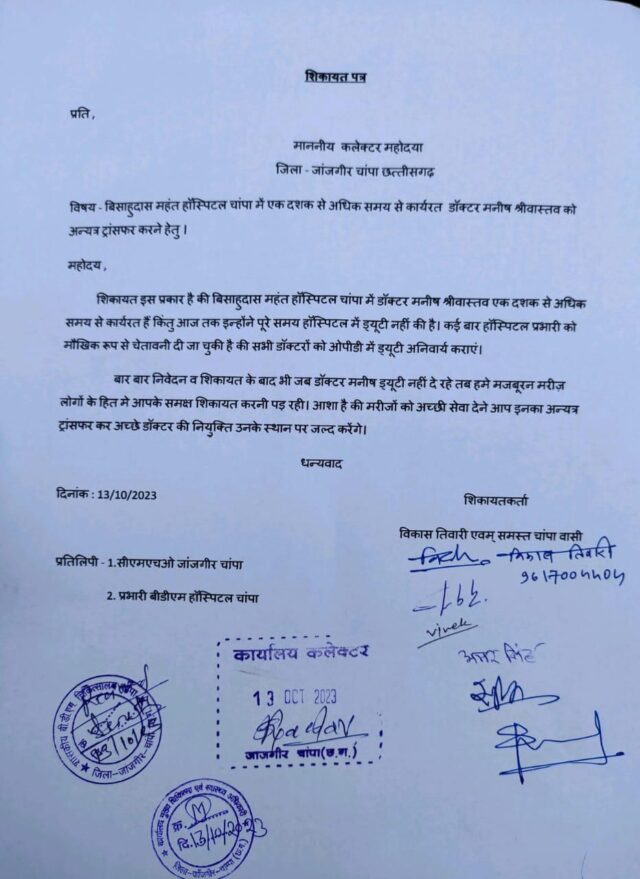 शिकायत पत्र
प्रति ,
माननीय कलेक्टर महोदया
जिला - जांजगीर चांपा छत्तीसगढ़
विषय - बिसाहुदास महंत हॉस्पिटल चांपा में एक दशक से अधिक समय से कार्यरत डॉक्टर मनीष श्रीवास्तव को
अन्यत्र ट्रांसफर करने हेतु ।
महोदय ,
शिकायत इस प्रकार है की बिसाहुदास महंत हॉस्पिटल चांपा में डॉक्टर मनीष श्रीवास्तव एक दशक से अधिक
समय से कार्यरत हैं किंतु आज तक इन्होंने पूरे समय हॉस्पिटल में ड्यूटी नहीं की है। कई बार हॉस्पिटल प्रभारी को
मौखिक रूप से चेतावनी दी जा चुकी है की सभी डॉक्टरों को ओपीडी में ड्यूटी अनिवार्य कराएं।
बार बार निवेदन व शिकायत के बाद भी जब डॉक्टर मनीष ड्यूटी नहीं दे रहे तब हमे मजबूरन मरीज़
लोगों के हित मे आपके समक्ष शिकायत करनी पड़ रही। आशा है की मरीजों को अच्छी सेवा देने आप इनका अन्यत्र
ट्रांसफर कर अच्छे डॉक्टर की नियुक्ति उनके स्थान पर जल्द करेंगे।
धन्यवाद
दिनांक : 13/10/2023
शिकायतकर्ता
विकास तिवारी एवम् समस्त चांपा वासी
विकास तिवारी
प्रतिलिपी - 1.सीएमएचओ जांजगीर चांपा
2. प्रभारी बीडीएम हॉस्पिटल चांपा
vivek
कार्यालय कलेक्टर
13 OCT 2023
जांजगीर चांपा (छ.ग.)
जिला-जांजगीर चांपा
कार्यालय मुख्य चिकित्सा एवं स्वास्थ्य अधिकारी
क्र.
दि. 13/10/2023
जिला-जांजगीर-चाम्पा (छ.ग.)